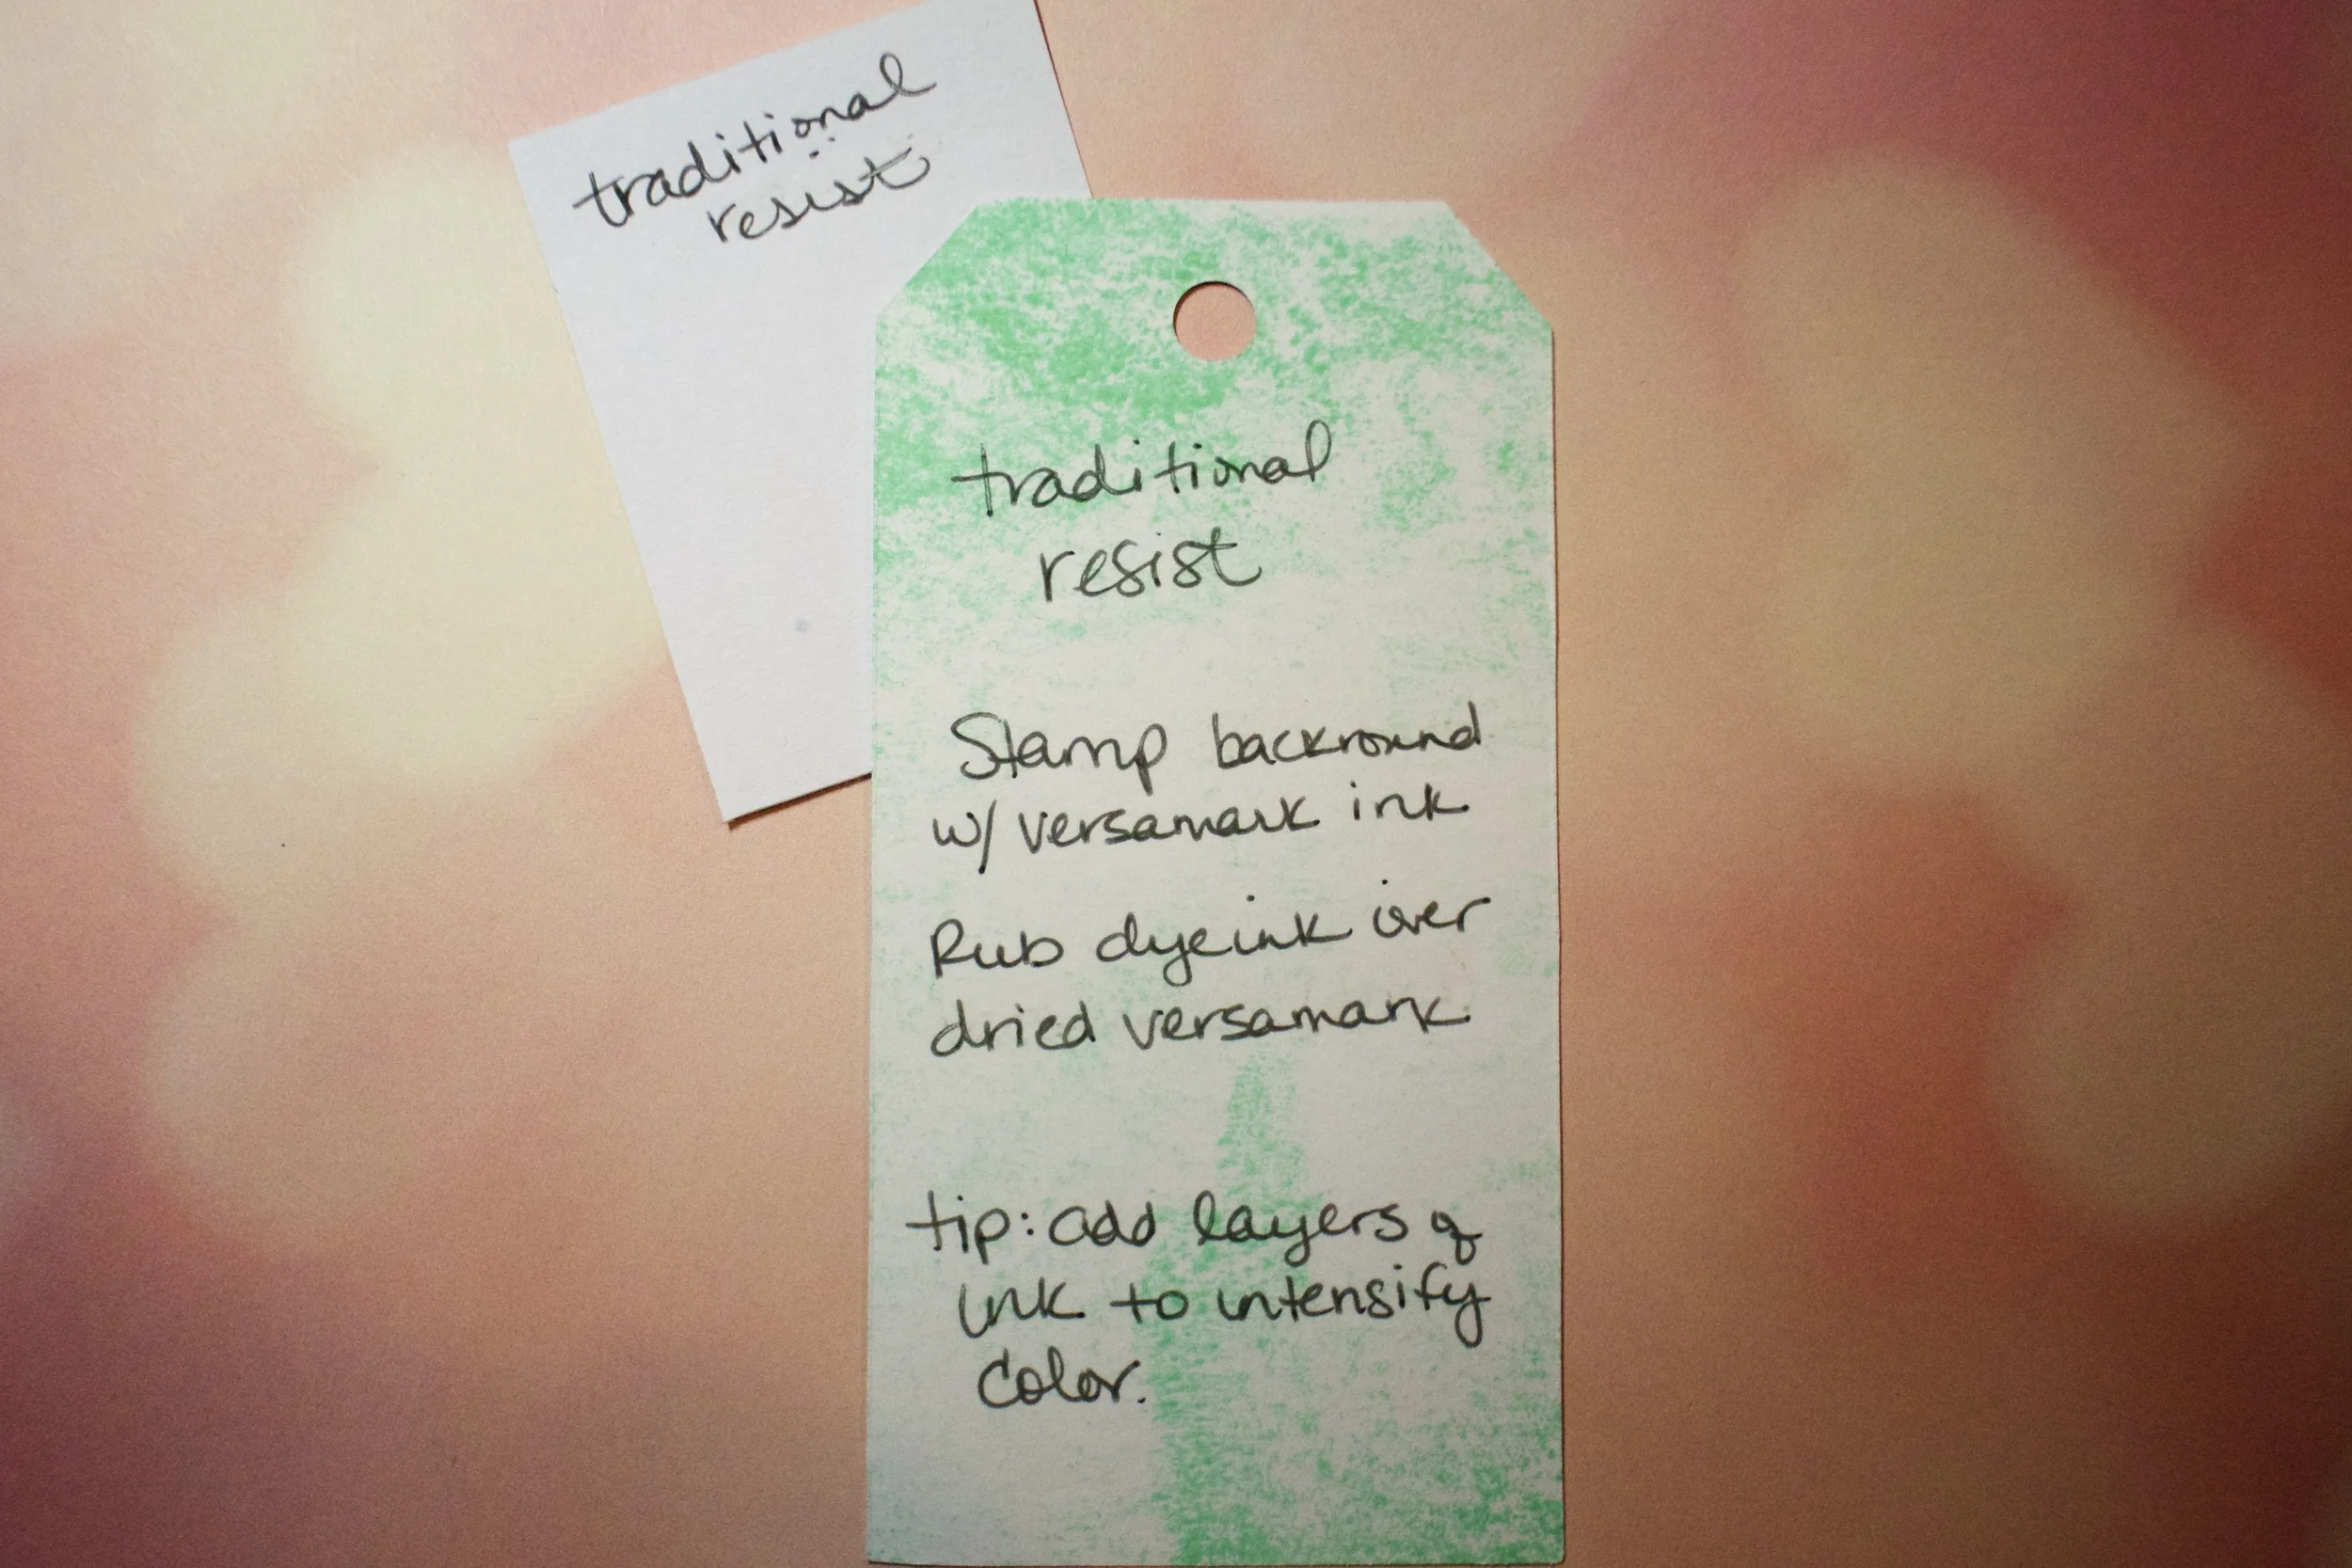 traditional
resist
traditional
resist
Stamp backround
w/ versamark ink
Rub dye ink over
dried versamark
tip: add layers of
ink to intensify
color.